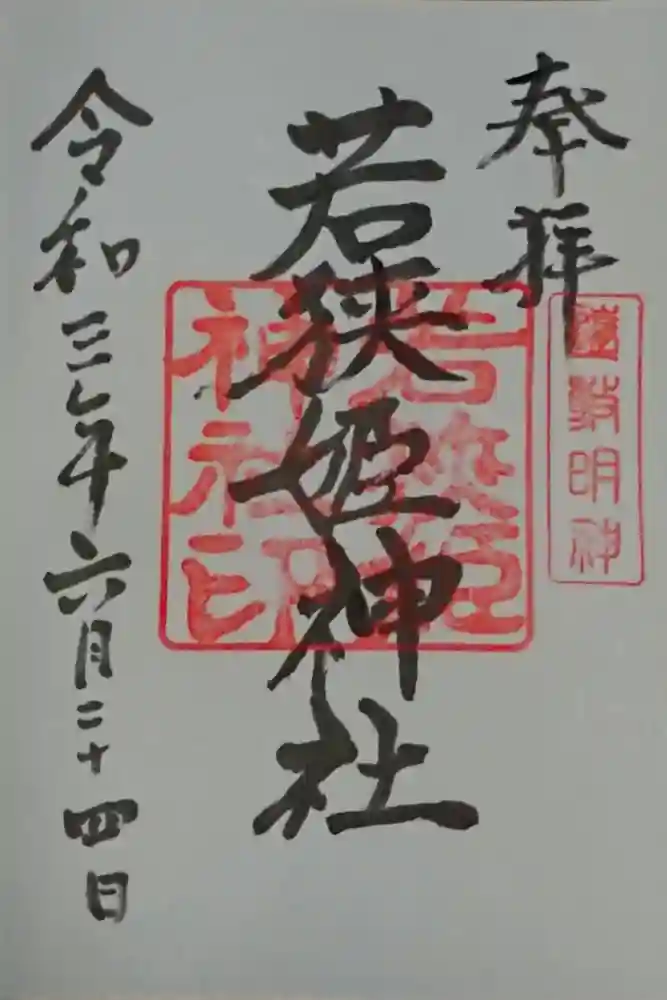 奉拝
遠敷明神
若狭姫神社
若狭姫神社印
令和三年六月二十四日